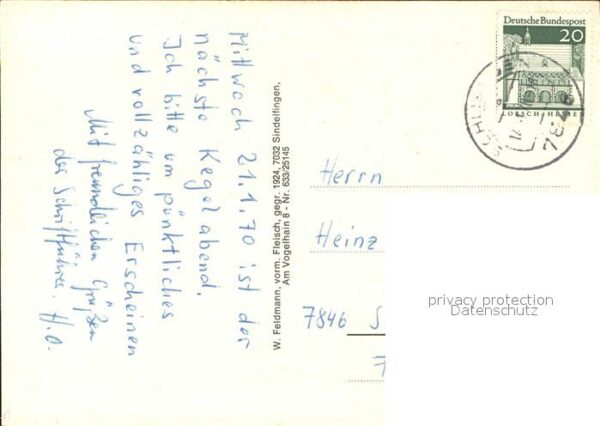 Mittwoch 21.1.70 ist der
nächste Kegelabend.
Ich bitte um pünktliches
und vollzähliges Erscheinen
Mit freundlichen Grüßen
der Schriftführer. H.O.
W. Feldmann, vorm. Fleisch, gegr. 1924, 7032 Sindelfingen,
Am Vogelhain 8 - Nr. 633/25145
Deutsche Bundespost
20
LORSCH · HESSEN
Herrn
Heinz
7846 S
7
privacy protection
Datenschutz